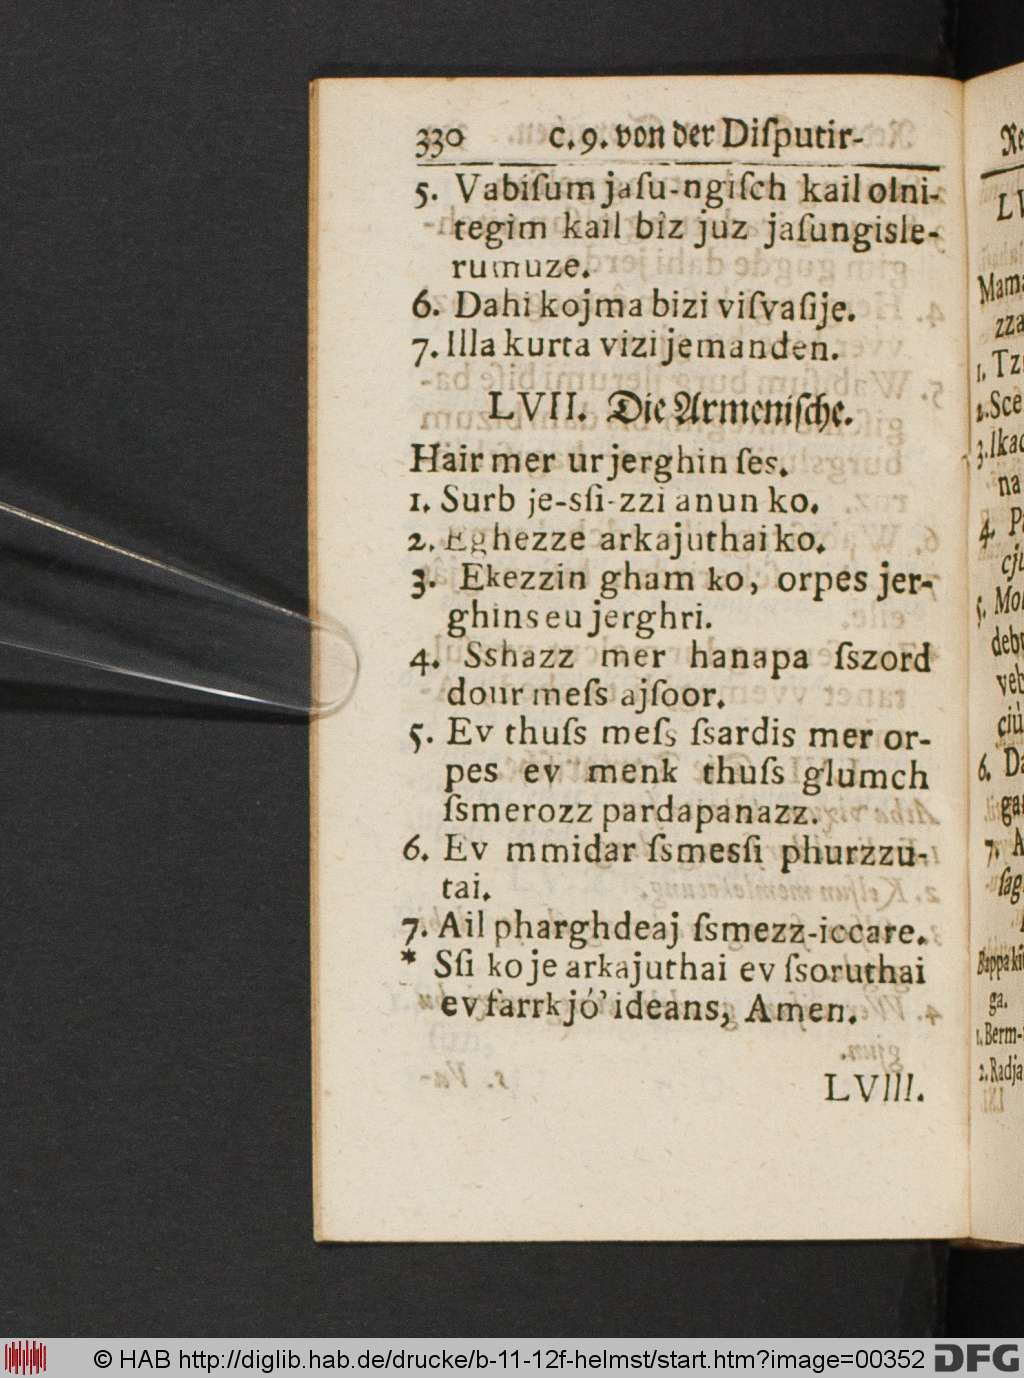 330 c. 9. von der Diſputir-
5. Vabiſum jaſu-ngiſch kail olni-
tegim kail biz juz jaſungisle-
rumuze.
6. Dahi kojma bizi viſvaſije.
7. Illa kurta vizi jemanden.
LVII. Die Armeniſche.
Hair mer ur jerghin ſes.
1. Surb je-sſi-zzi anun ko.
2. Eghezze arkajuthai ko.
3. Ekezzin gham ko, orpes jer-
ghins eu jerghri.
4. Sshazz mer hanapa ſszord
dour meſs ajſoor.
5. Ev thuſs meſs ſsardis mer or-
pes ev menk thuſs glumch
ſsmerozz pardapanazz.
6. Ev mmidar ſsmesſi phurzzu-
tai.
7. Ail pharghdeaj ſsmezz-iccare.
* Sſi ko je arkajuthai ev ſsoruthai
ev farrkjó' ideans, Amen.
LVIII.
Re
LV
Mama
zza
1. Tz
2. Sce
3. Ikac
na
4. P
cju
5. Mol
debv
veb
ciù
6. Da
gar
7. A
ſag
Bappa kit
ga.
1. Berm-
2. Radja
© HAB http://diglib.hab.de/drucke/b-11-12f-helmst/start.htm?image=00352 DFG